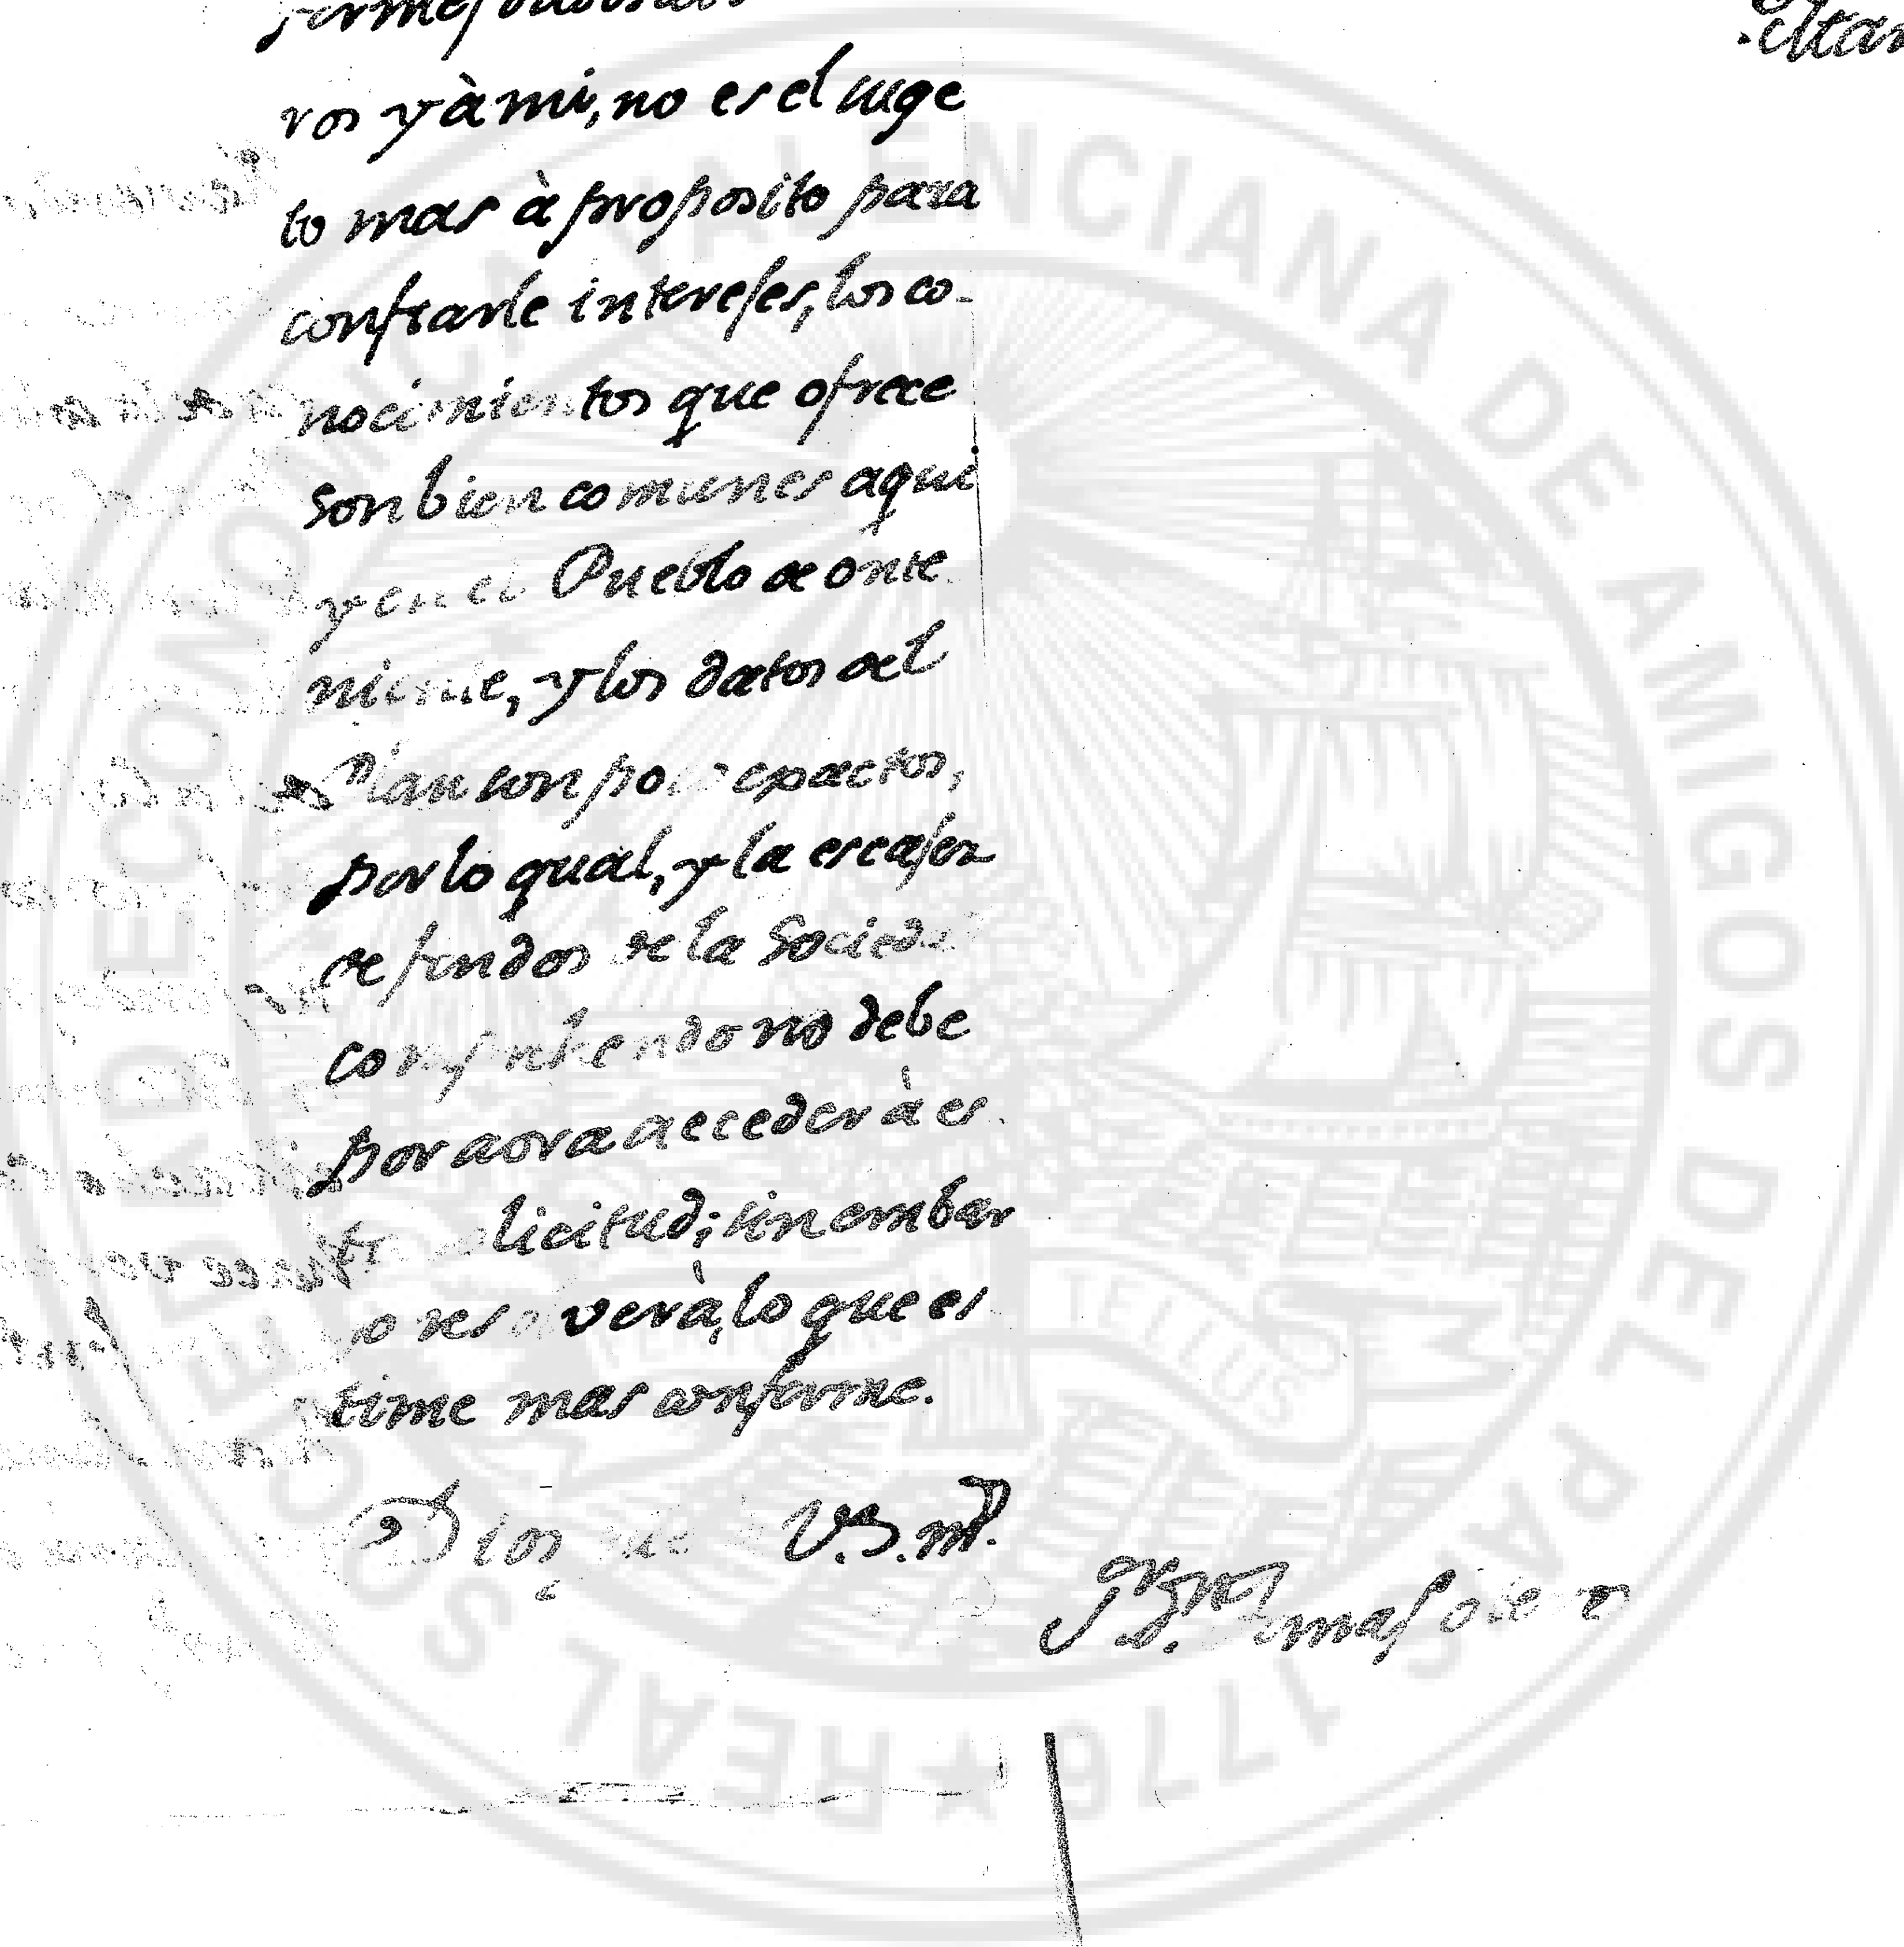 ros y à mi, no es el suge
to mas à proposito para
confiarle intereses, los co-
nocimientos que ofrece
son bien comunes aqui
y en el Pueblo de Onte
niente, y los datos del
Plan son poco exactos,
por lo qual, y la escasez
de fondos de la Sociedad
comprehendo no debe
por aora acceder à es
ta solicitud; sin embar
go resolverà, lo que es
time mas conforme.
Dios gue à V.S. ms.
REAL SOCIEDAD ECONOMICA VALENCIANA DE AMIGOS DEL PAIS 1776